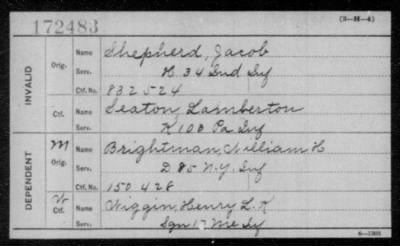 172483 (3-H-4)
INVALID
Orig. Name Shepherd, Jacob
Serv. H 34 Ind Inf
Ctf. No. 832524
Ctf. Name Seaton, Lamberton
Serv. K 103 Pa Inf
DEPENDENT
M Orig. Name Brightman, William H
Serv. D 85 N.Y. Inf
Ctf. No. 150428
Ctf. Name Wiggin, Henry L. K
Serv. Sgn 17 Me Inf
6-1308